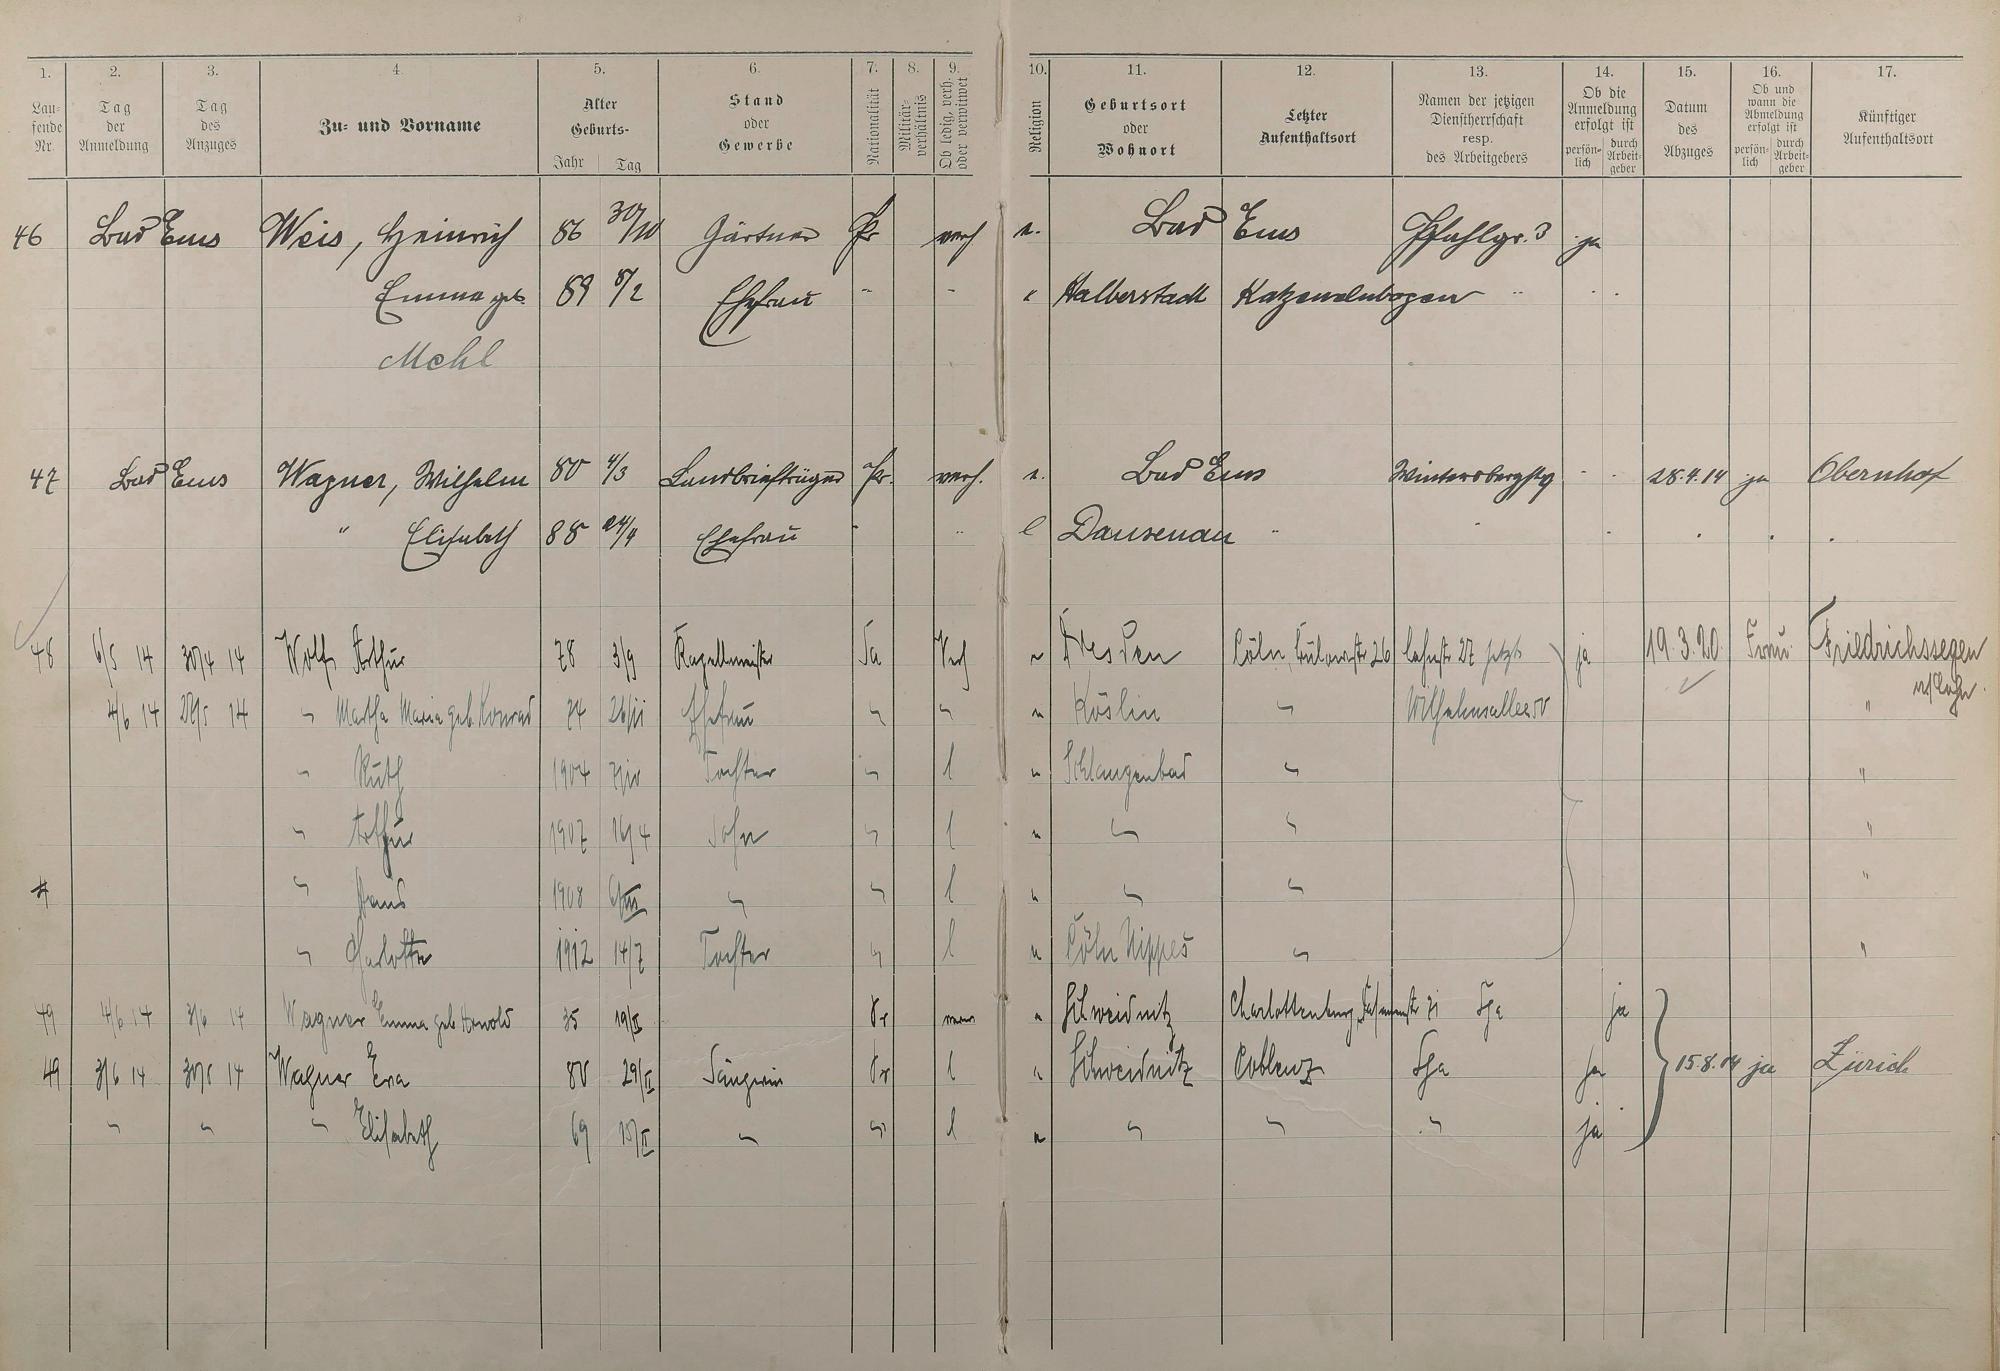 1. 2. 3. 4. 5. 6. 7. 8. 9. 10. 11. 12. 13. 14. 15. 16. 17.
Laufende Nr. Tag der Anmeldung Tag des Anzuges Zu- und Vorname Alter Geburts- Jahr Tag Stand oder Gewerbe Nationalität Militärverhältnis Ob ledig, verh. oder verwitwet Religion Geburtsort oder Wohnort Letzter Aufenthaltsort Namen der jetzigen Dienstherrschaft resp. des Arbeitgebers Ob die Anmeldung erfolgt ist persönlich durch Arbeitgeber Datum des Abzuges Ob und wann die Abmeldung erfolgt ist persönlich durch Arbeitgeber Künftiger Aufenthaltsort
46 Bad Ems Weis, Heinrich 86 30/10 Gärtner Pr verh e. Bad Ems Pfahlgr. 3 ja
Emma geb. 89 8/2 Ehefrau " " Halberstadt Katzenelnbogen " " "
Mehl
47 Bad Ems Wagner, Wilhelm 80 4/3 Landbriefträger Pr. verh. e. Bad Ems " " 28.4.14 ja Obernhof
" Elisabeth 88 24/4 Ehefrau " " Dausenau " " " " " "
48 6/5 14 30/4 14 Wolf Arthur 78 3/9 Kapellmeister Sa Verh Dresden Cöln Bülowstr 26 Lahnstr 27 jetzt ja 19.3.20. Frau Friedrichssegen
a/Lahn.
4/6 14 14 " Martha Maria geb. Konrad 74 26/11 Ehefrau " " " Köslin " Wilhelmsallee "
" Ruth 1904 Tochter " l " Schlangenbad " "
" Arthur 1907 16/4 Sohn " l " " " "
" Hans 1908 " " l " " " "
" Charlotte 1912 14/7 Tochter " l " Cöln Nippes " "
49 4/6 14 3/6 14 Wagner Emma geb. 35 19/II Pr " Schweidnitz Charlottenburg ja
49 3/6 14 30/5 14 Wagner Eva 80 29/II Sängerin Pr l " Schweidnitz Coblenz ja 15.8.14 ja Zürich
" " " Elisabeth 69 " " l " " " " ja